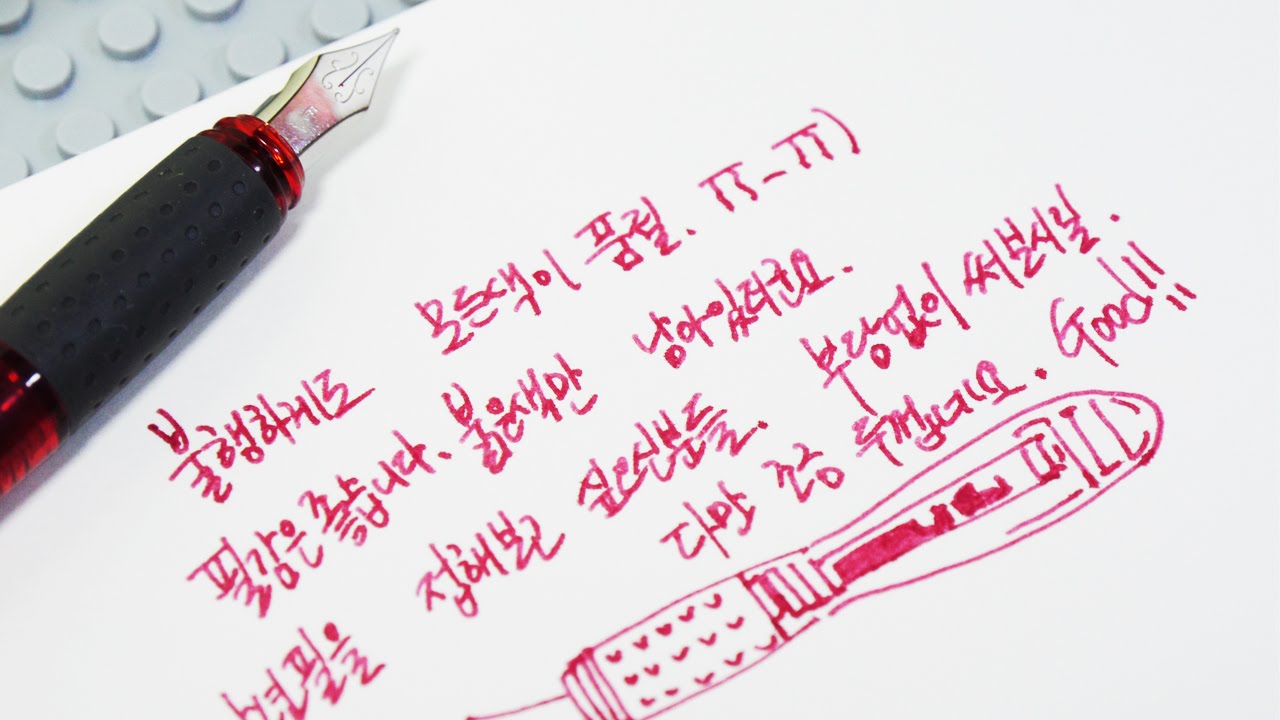 불행하게도 모든색이 품절. TT_TT)
필감은 좋습니다. 붉은색만 남아있더군요.
년필을 접해보고 싶으신분들. 부담없이 써보시길.
다만 조금 두껍네요. Good!!